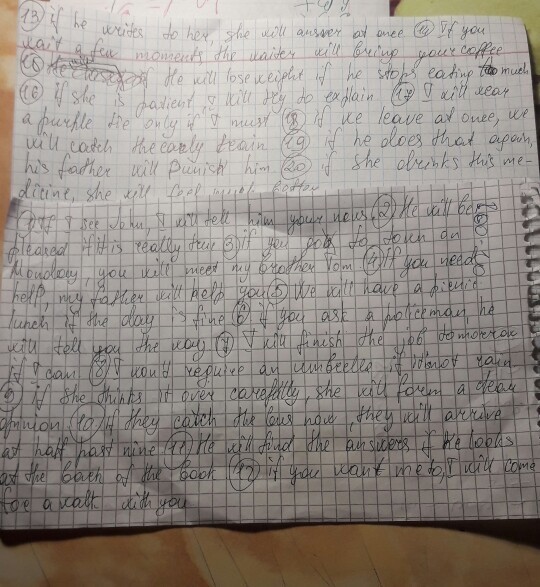 (13) if he writes to her she will answer at once (14) If you
wait a few moments the waiter will bring your coffee
(15) He will lose weight if he stops eating too much
(16) if she is patient I will try to explain (17) I will wear
a purple tie only if I must (18) if we leave at once, we
will catch the early train (19) if he does that again,
his father will punish him. (20) if she drinks this me-
dicine, she will feel much better
1) If I see John, I will tell him your news (2) He will be
pleased if it is really true (3) if you go to town on
Monday, you will meet my brother Tom (4) if you need
help, my father will help you (5) We will have a picnic
lunch if the day is fine (6) if you ask a policeman, he
will tell you the way (7) I will finish the job tomorrow
if I can (8) I won't require an umbrella if it not rain
(9) if she thinks it over carefully, she will form a clear
opinion (10) If they catch the bus now, they will arrive
at half past nine (11) He will find the answers if he looks
at the back of the book (12) if you want me to, I will come
for a walk with you